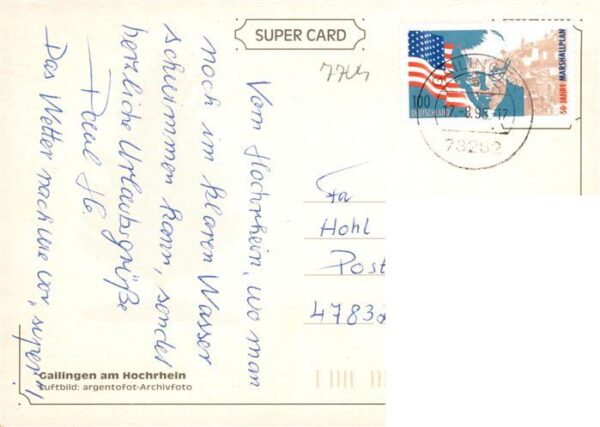 SUPER CARD
Vom Hochrhein, wo man
noch im klaren Wasser
schwimmen kann, sendet
herzliche Urlaubsgrüße
Paul
Das Wetter nach wie vor „super“!
100
DEUTSCHLAND
50 JAHRE MARSHALLPLAN
78262
Fa
Hohl
Post
47832
Gailingen am Hochrhein
Luftbild: argentofot-Archivfoto